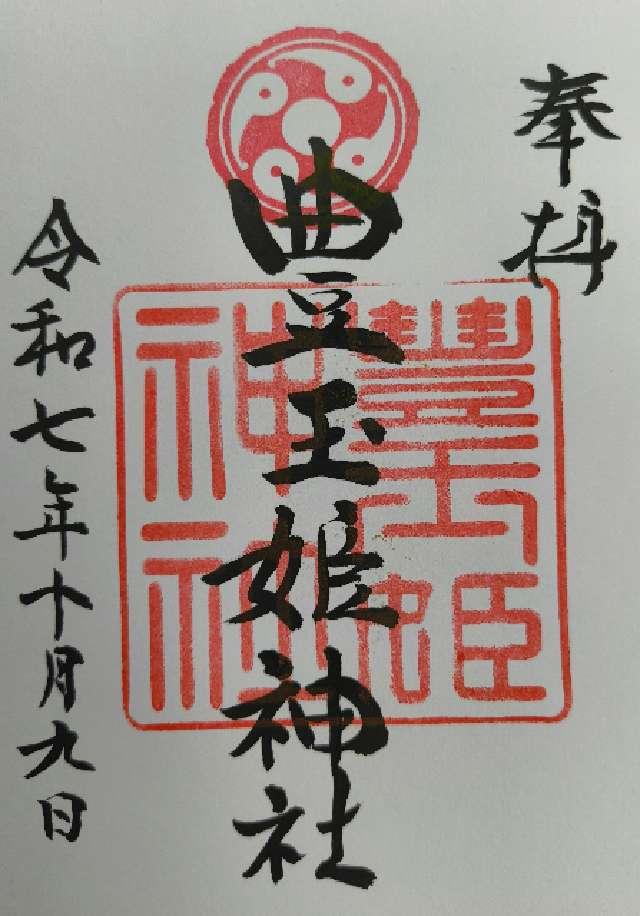 奉拝
豊玉姫神社
豊玉姫
神社
令和七年十月九日